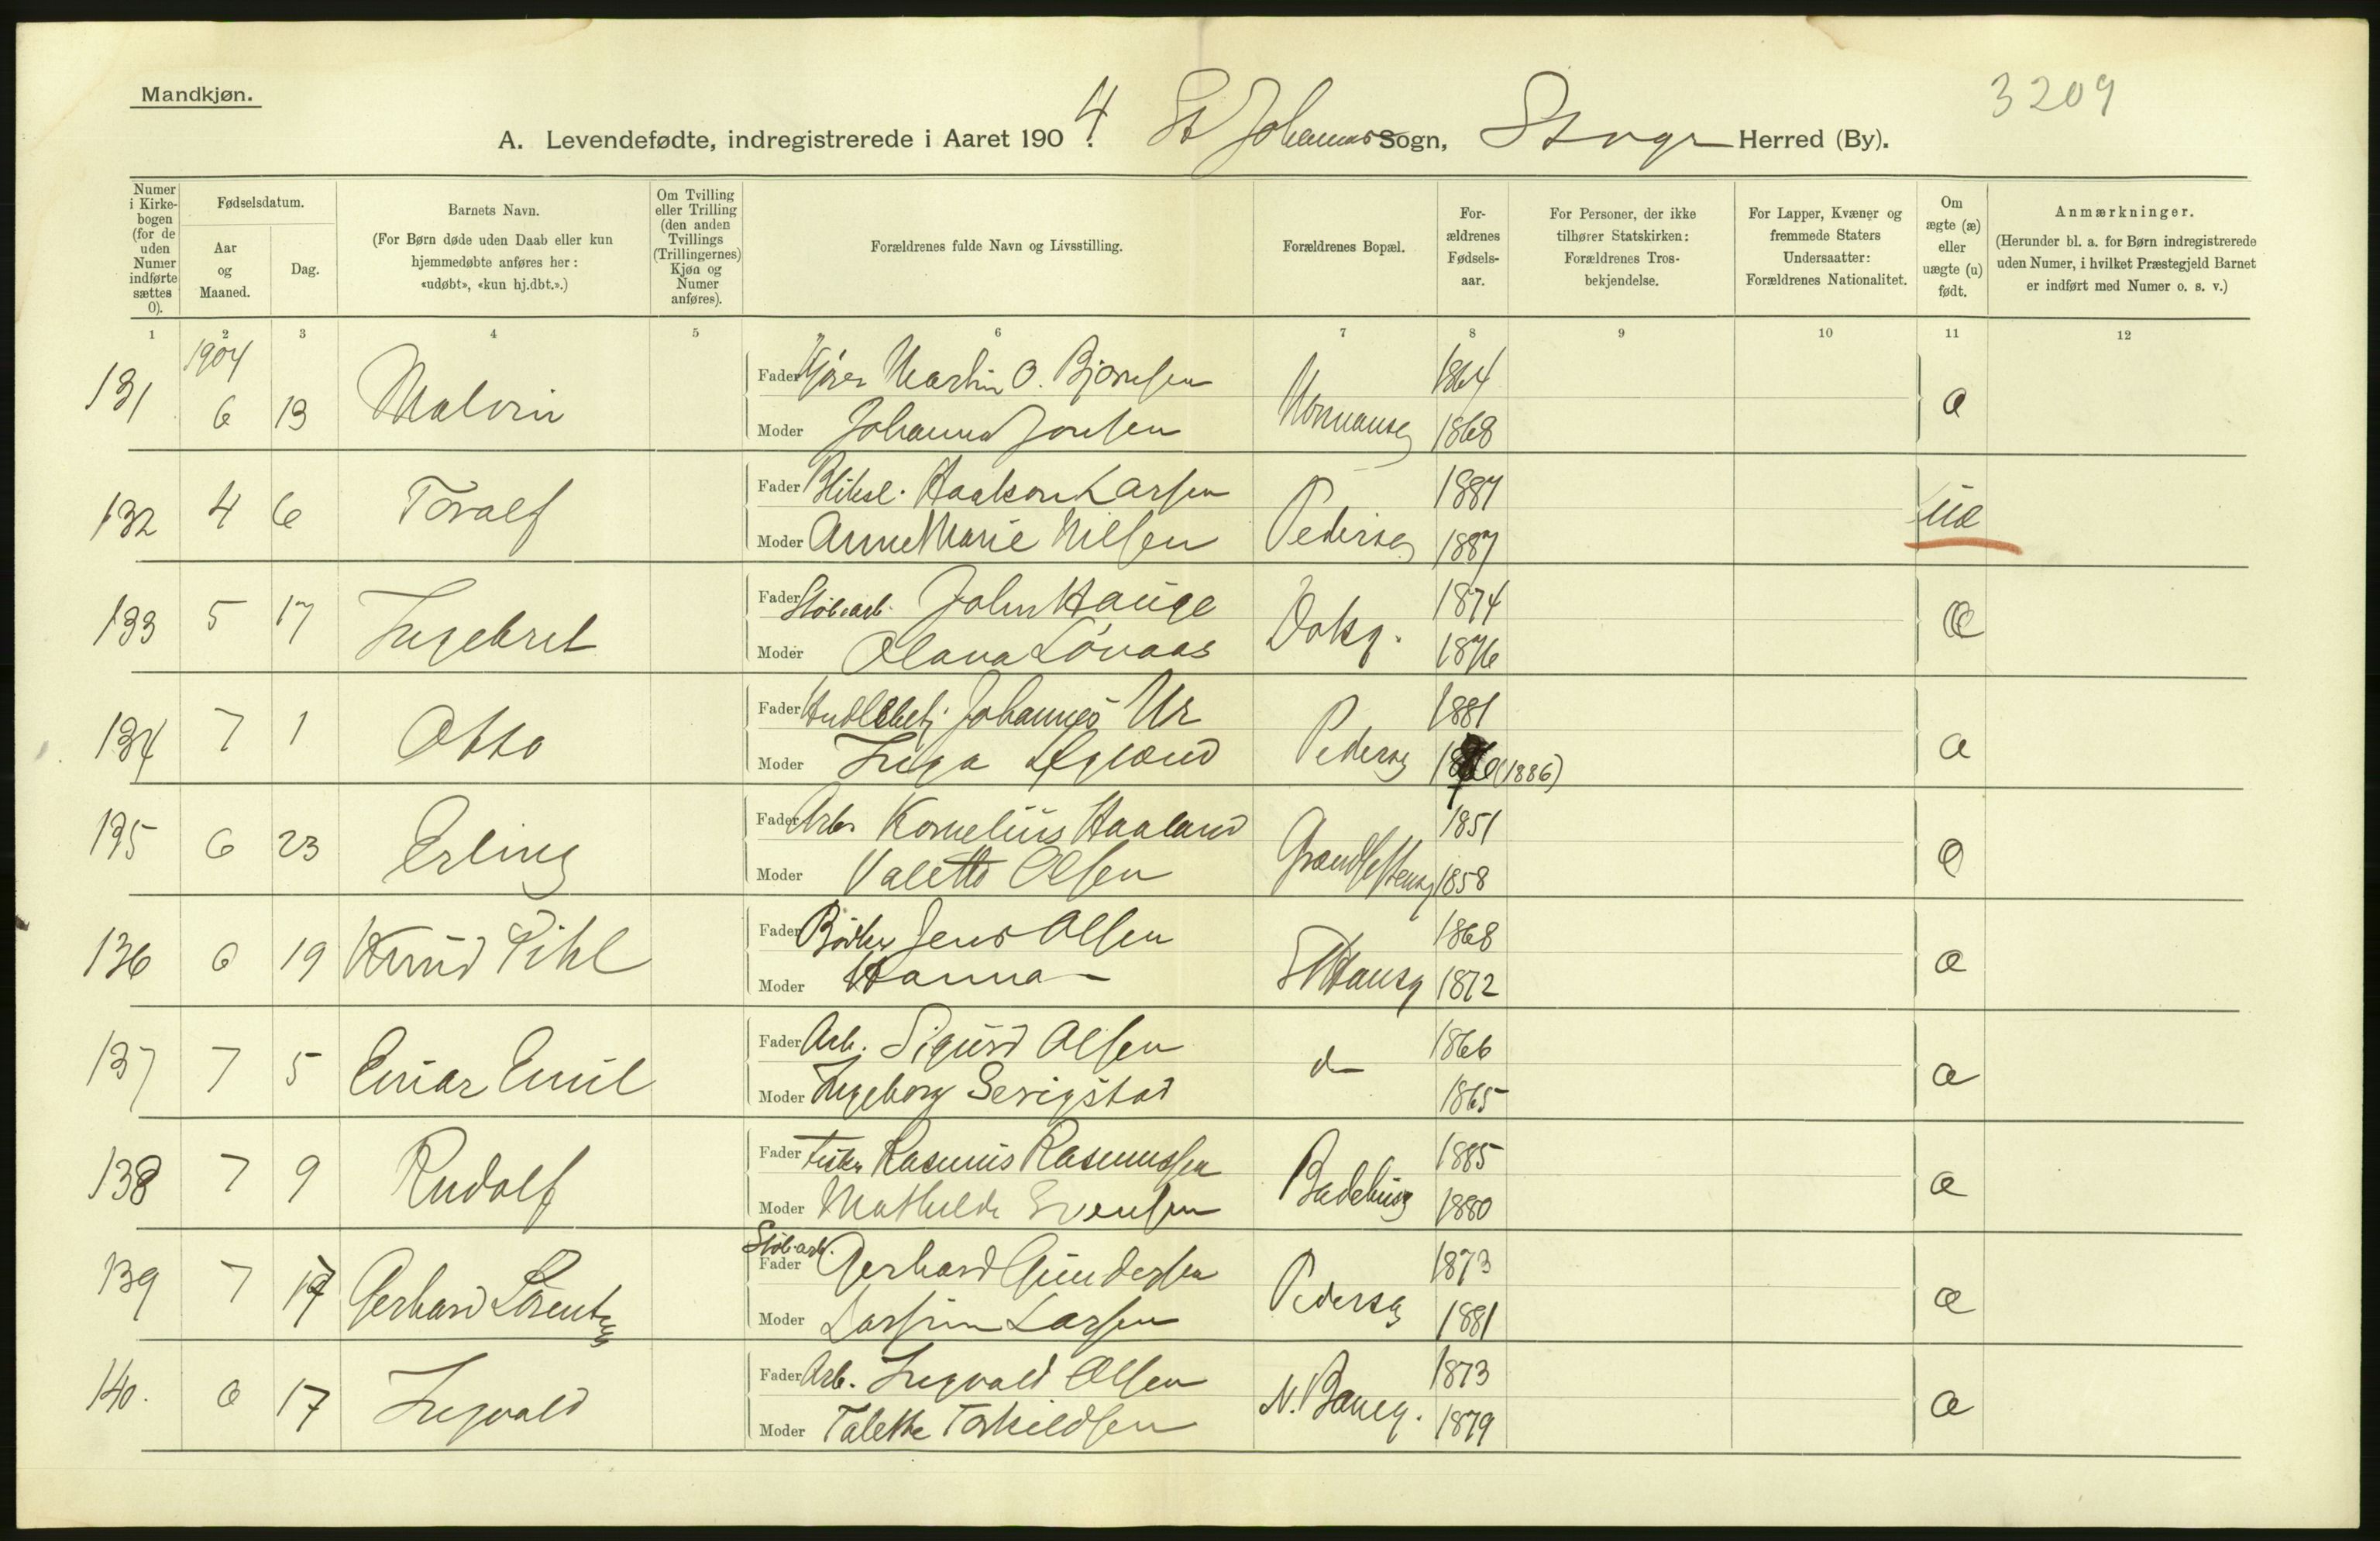 Mandkjøn.
3209
A. Levendefødte, indregistrerede i Aaret 1904. St Johannes Sogn, Stvgr Herred (By).
Numer i Kirkebogen (for de uden Numer indførte sættes 0).
Fødselsdatum.
Aar og Maaned.
Dag.
Barnets Navn.
(For Børn døde uden Daab eller kun hjemmedøbte anføres her: «udøbt», «kun hj.dbt.».)
Om Tvilling eller Trilling (den anden Tvillings (Trillingernes) Kjøn og Numer anføres).
Forældrenes fulde Navn og Livsstilling.
Forældrenes Bopæl.
Forældrenes Fødselsaar.
For Personer, der ikke tilhører Statskirken: Forældrenes Trosbekjendelse.
For Lapper, Kvæner og fremmede Staters Undersaatter: Forældrenes Nationalitet.
Om ægte (æ) eller uægte (u) født.
Anmærkninger.
(Herunder bl. a. for Børn indregistrerede uden Numer, i hvilket Præstegjeld Barnet er indført med Numer o. s. v.)
1 2 3 4 5 6 7 8 9 10 11 12
1904
131 6 13 Malvin Fader Martin O. Bjørnsen 1864 æ
Moder Johanna Jonsen 1868
132 4 6 Toralf Fader Haakon Larsen Pedersg 1887 uæ
Moder Anne Marie Nilsen 1887
133 5 17 Ingebret Fader Støb.arb. John Hauge Doksg. 1874 æ
Moder Olava Lövaas 1876
134 7 1 Otto Fader Johannes Ur Pedersg 1881 æ
Moder Inga (1886)
135 6 23 Erling Fader Arb. Kornelius Haaland 1851 æ
Moder Valette Olsen 1858
136 6 19 Knud Pihl Fader Bødker Jens Olsen St Hansg 1868 æ
Moder Hanna — 1872
137 7 5 Einar Emil Fader Arb. Sigurd Olsen d— 1866 æ
Moder Ingeborg Serigstad 1865
138 7 9 Rudolf Fader Fisker Rasmus Rasmussen Badehusg 1885 æ
Moder Mathilde Svensen 1880
139 7 17 Gerhard Lorentz Støb.arb. Fader Gerhard Gundersen Pedersg 1873 æ
Moder Larsine Larsen 1881
140. 6 17 Ingvald Fader Arb. Ingvald Olsen N. Baneg. 1873 æ
Moder Talette Torkildsen 1879